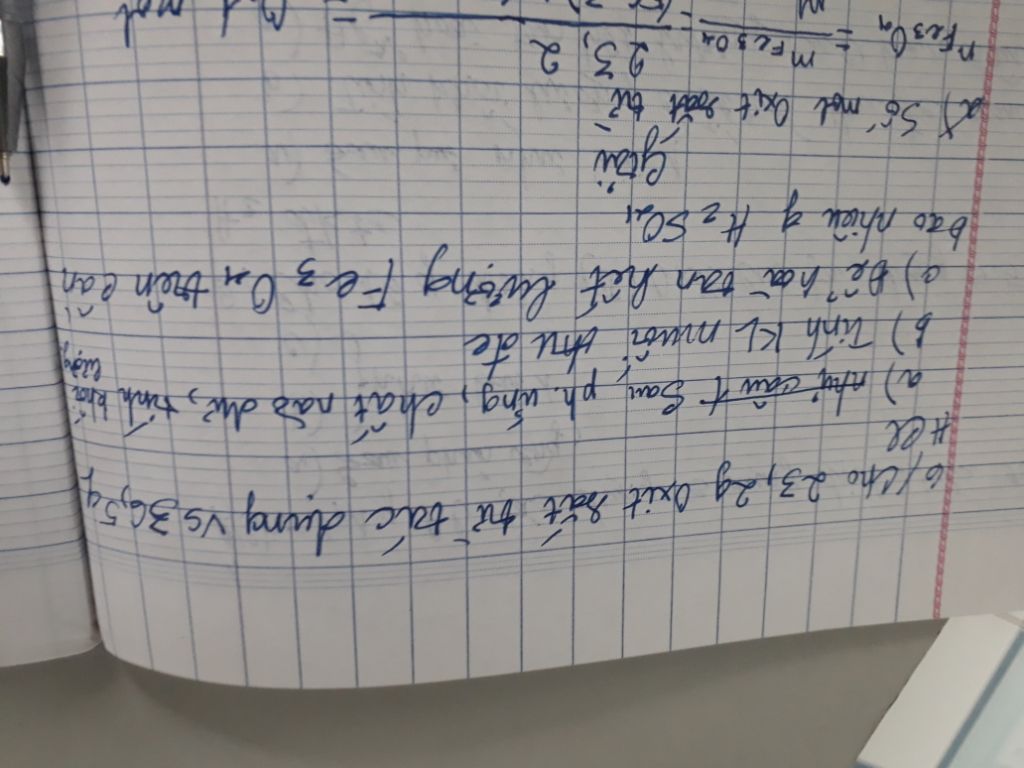 6/ Cho 23,2g Oxit sắt từ tác dụng vs 36,5g
HCl
a) Sau ph. ứng, chất nào dư, tính khối lượng
b) Tính KL muối thu đc
c) Để hoà tan hết lượng Fe3O4 trên cần
bao nhiêu g H2SO4
Giải
a) Số mol Oxit sắt từ
nFe3O4 = mFe3O4 / M = 23,2 = 0,1 mol